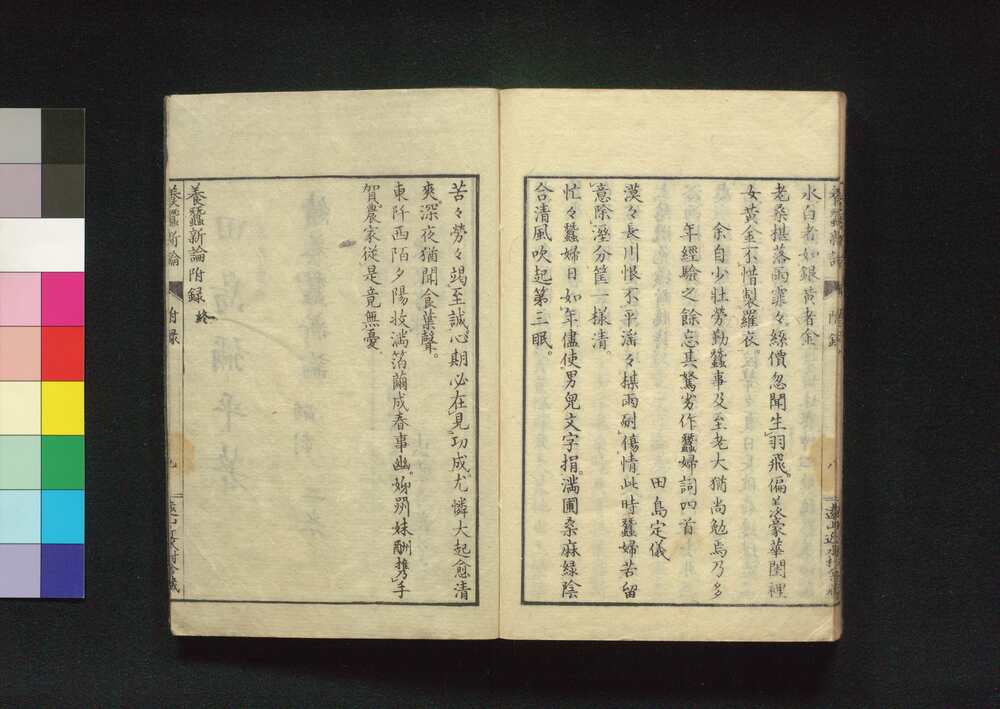 水白者如銀黄者金
老桑摧落雨霏々絲價忽聞生羽飛偏羨豪華閨裡
女黄金不惜製羅衣
余自少壮勞勤蠶事及至老大猶尚勉焉乃多
年經驗之餘忘其駑劣作蠶婦詞四首
田島定儀
漠々長川恨不平滛々楳雨耐傷情此時蠶婦苦留
意除溼分筐一樣清
忙々蠶婦日如年儘使男兒文字捐満圃桑麻緑陰
合清風吹起第三眠
苦々勞々竭至誠心期必在見功成尤憐大起愈清
爽深夜猶聞食葉聲
東阡西陌夕陽收満箔繭成春事幽姉朔妹酬携手
賀農家從是竟無憂
養蠶新論附録終
養蠶新論
附録
九